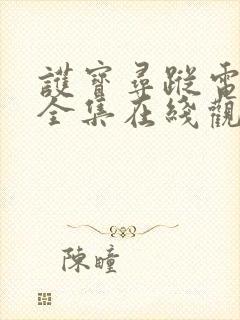 護寶尋蹤電
全集在綫觀
陳瞳